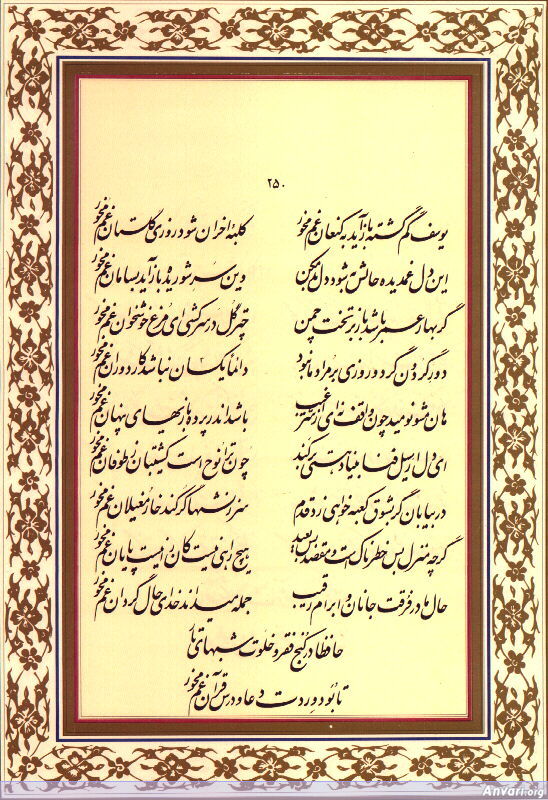 ۲۵۰
یوسف گم گشته باز آید به کنعان غم مخور کلبهٔ احزان شود روزی گلستان غم مخور
این دل غمدیده حالش به شود دل بد مکن وین سر شوریده باز آید بسامان غم مخور
گر بهار عمر باشد باز بر تخت چمن چتر گل در سر کشی ای مرغ خوشخوان غم مخور
دور گردون گر دو روزی بر مراد ما نبود دائماً یکسان نباشد کار دوران غم مخور
هان مشو نومید چون واقف نه‌ای از سر غیب باشد اندر پرده بازیهای پنهان غم مخور
ای دل ار سیل فنا بنیاد هستی بر کند چون ترا نوح است کشتیبان ز طوفان غم مخور
در بیابان گر بشوق کعبه خواهی زد قدم سرزنشها گر کند خار مغیلان غم مخور
گرچه منزل بس خطرناک است و مقصد بس بعید هیچ راهی نیست کان را نیست پایان غم مخور
حال ما در فرقت جانان و ابرام رقیب جمله میداند خدای حال گردان غم مخور
حافظا در کنج فقر و خلوت شبهای تار
تا بود وردت دعا و درس قرآن غم مخور
Anvari.org